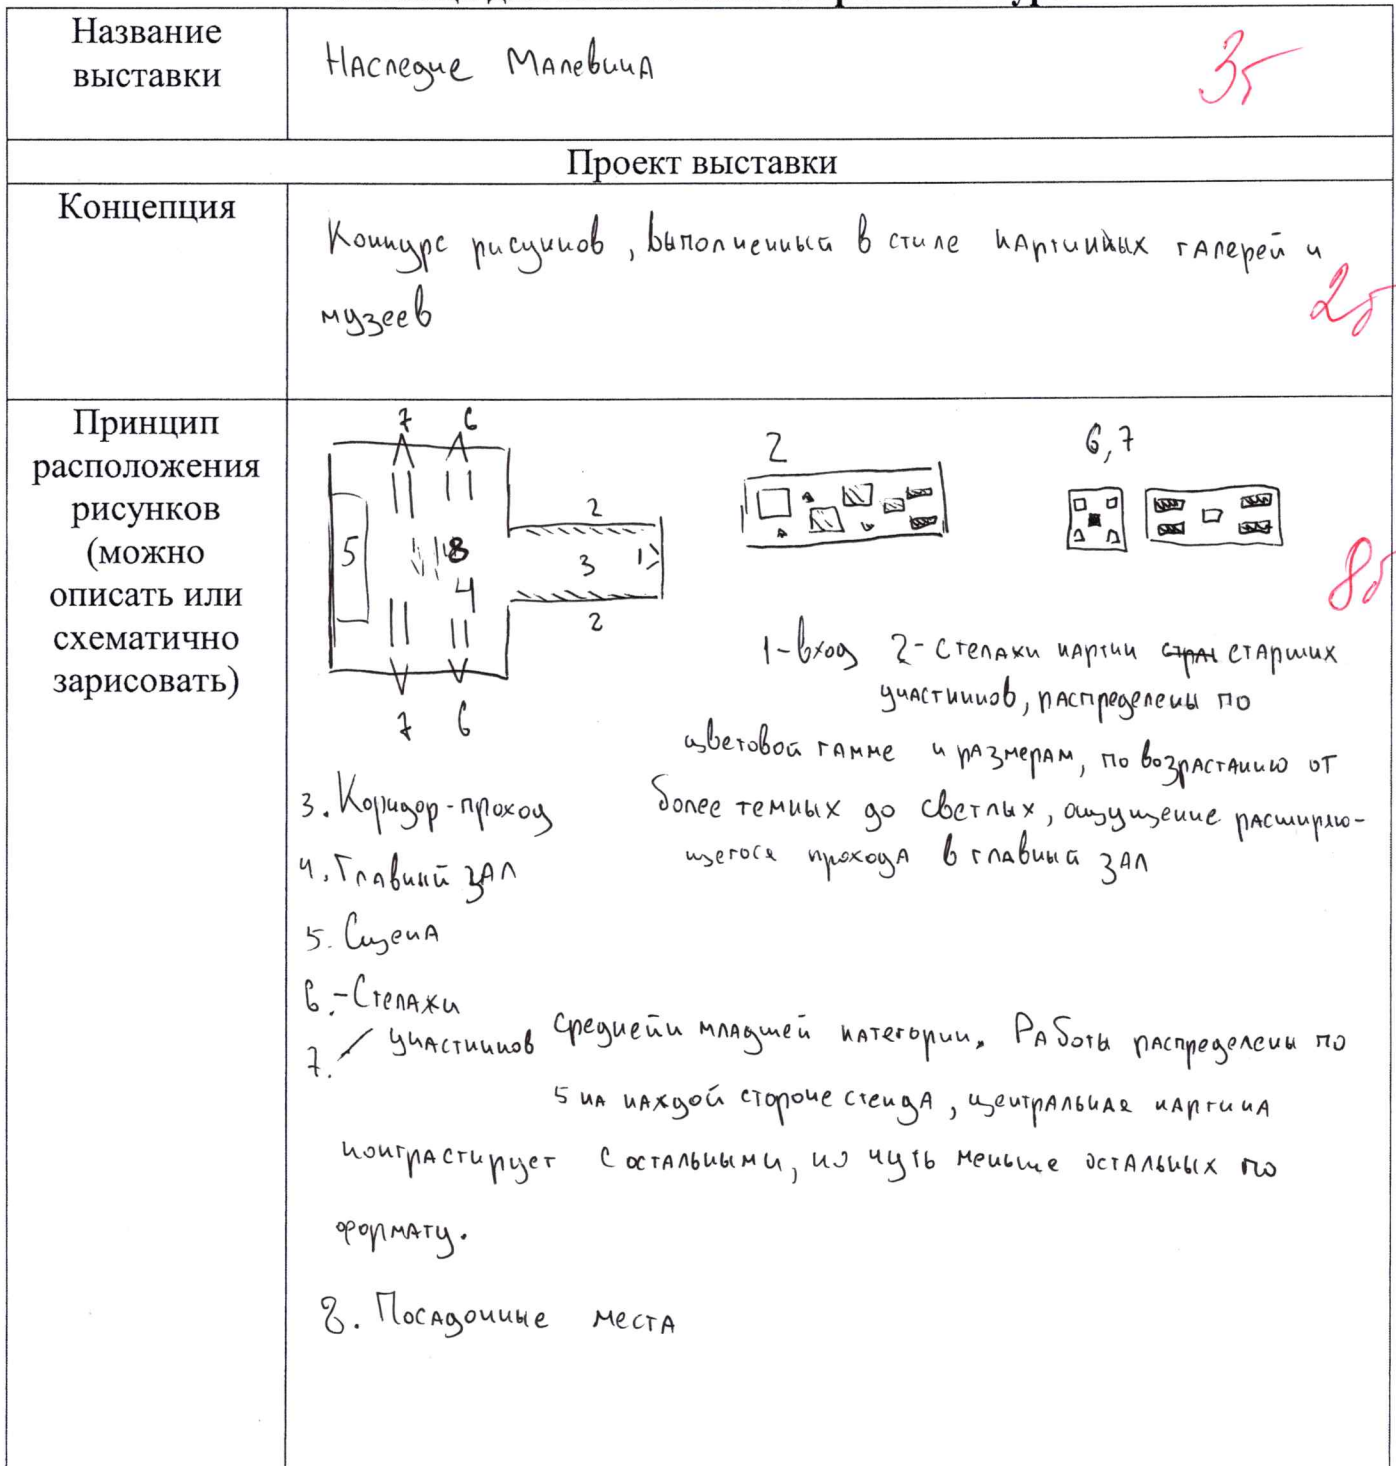 Название
выставки
Наследие Малевича
3б
Проект выставки
Концепция
Конкурс рисунков, выполненный в стиле картинных галерей и
музеев
2б
Принцип
расположения
рисунков
(можно
описать или
схематично
зарисовать)
7 6
2
6,7
2
5
8
3
1
4
2
7 6
8б
1-вход 2-Стелажи картин старших
участников, распределены по
цветовой гамме и размерам, по возрастанию от
3. Коридор-проход более темных до светлых, ощущение расширяю-
щегося прохода в главный зал
4. Главный зал
5. Сцена
6.-Стелажи
7. участников средней и младшей категории. Работы распределены по
5 на каждой стороне стенда, центральная картина
контрастирует с остальными, но чуть меньше остальных по
формату.
8. Посадочные места